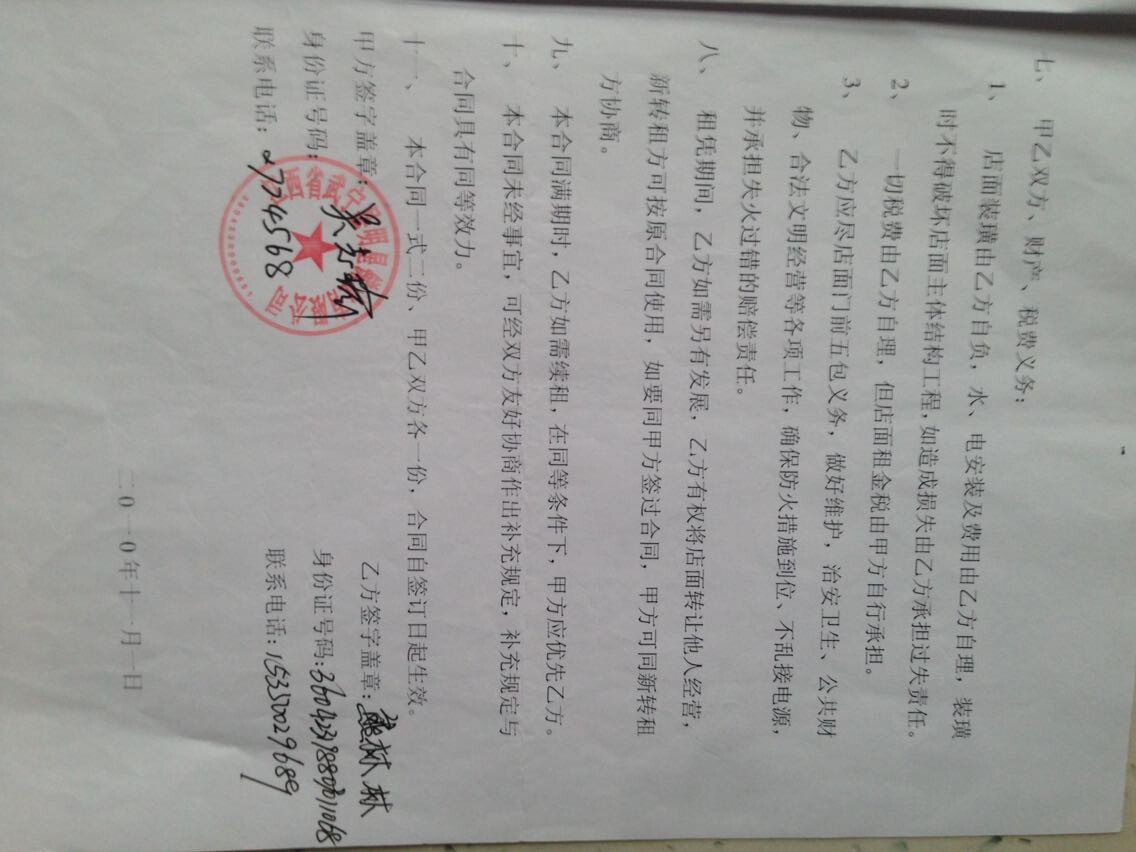 七、 甲乙双方、财产、税费义务：
1、 店面装璜由乙方自负，水、电安装及费用由乙方自理，装璜
时不得破坏店面主体结构工程，如造成损失由乙方承担过失责任。
2、 一切税费由乙方自理，但店面租金税由甲方自行承担。
3、 乙方应尽店面门前五包义务，做好维护，治安卫生、公共财
物、合法文明经营等各项工作，确保防火措施到位、不乱接电源，
并承担失火过错的赔偿责任。
八、 租凭期间，乙方如需另有发展，乙方有权将店面转让他人经营，
新转租方可按原合同使用，如要同甲方签过合同，甲方可同新转租
方协商。
九、 本合同满期时，乙方如需续租，在同等条件下，甲方应优先乙方。
十、 本合同未经事宜，可经双方友好协商作出补充规定，补充规定与
合同具有同等效力。
十一、 本合同一式二份、甲乙双方各一份，合同自签订日起生效。
甲方签字盖章： 乙方签字盖章：
身份证号码： 身份证号码：
联系电话：2724568 联系电话：15350029689
西省武宁
二0一0年十一月一日